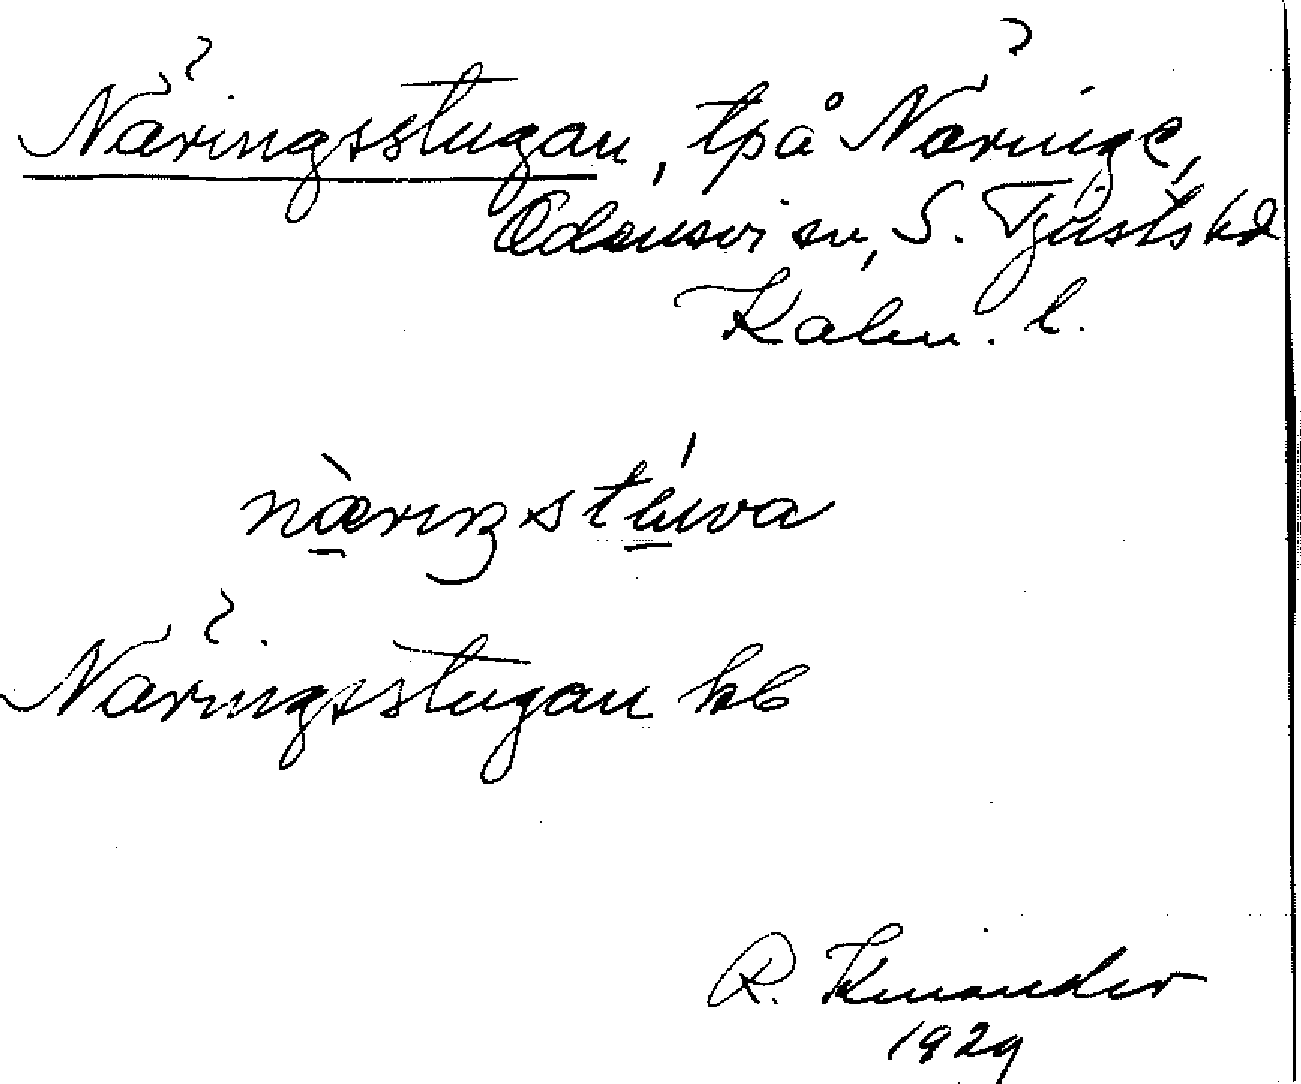 Näringsstugan, tpå Näringe,
Odensvi sn, S. Tjusts hd
Kalm. l.
nàriŋstúwa
Näringsstugan kb
R. Kinander
1929